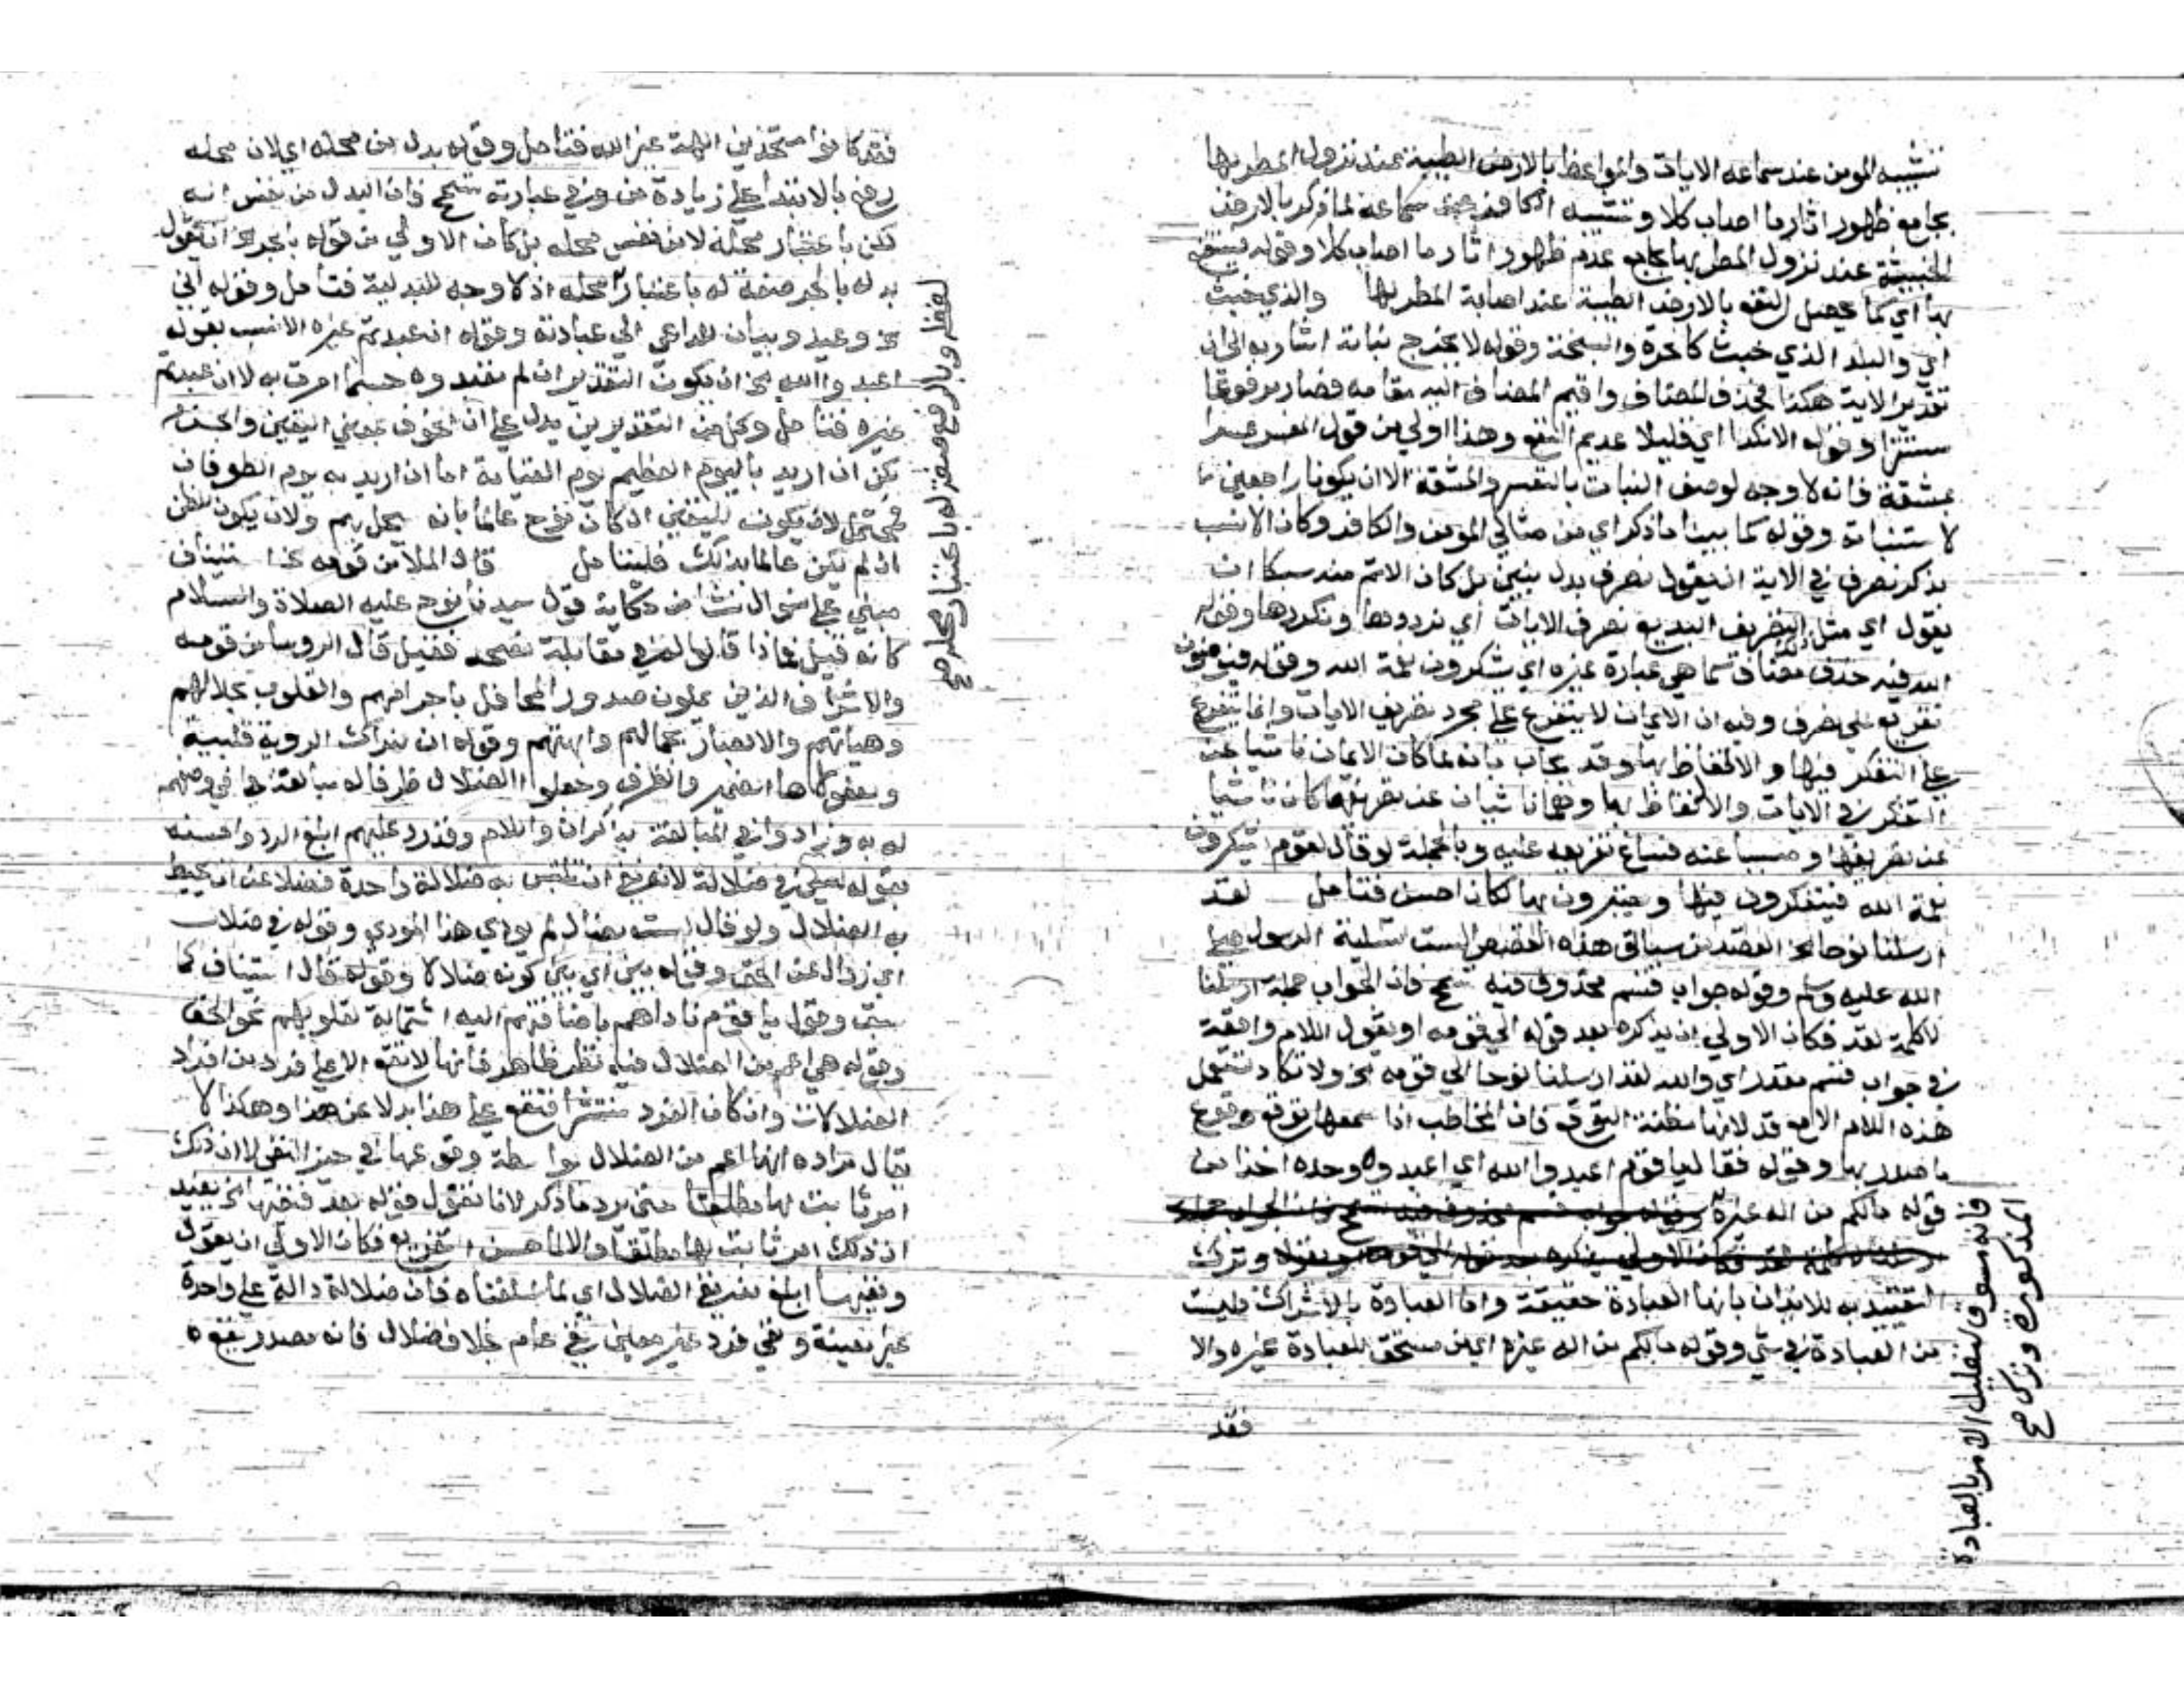 تشبيه المومن عند سماعه الايات والمواعظ بالارض الطيبة عند نزول المطر بها
بجامع ظهور اثار ما اصاب كلا وتشبيه الكافر عند سماعه لما ذكر بالارض
الخبيثة عند نزول المطر بها بجامع عدم ظهور اثار ما اصاب كلا وقوله فينتفع
بها اي كما يحصل النفع بالارض الطيبة عند اصابة المطر بها والذي خبث
اي والبلد الذي خبث كالحرة والسبخة وقوله لا يخرج نباته اشار به الى ان
تقدير الاية هكذا فحذف المضاف واقيم المضاف اليه مقامه فصار مرفوعا
مستترا وقوله الا نكدا اي قليلا عديم النفع وهذا اولي من قول المفسر عسرا
بمشقة فانه لا وجه لوصف النبات بالعسر والمشقة الا ان يكونا راجعين
لاستنباته وقوله كما بينا ما ذكر اي من مثالي المومن والكافر وكان الانسب
بذكر نصرف في الاية ان يقول نصرف بدل نبين بل كان الاتم منه سبكا ان
يقول اي مثل التصريف البديع نصرف الايات اي نرددها ونكررها وقوله
الله فيه حذف مضاف كما هي عبارة غيره اي يشكرون نعمة الله وقوله فيومنون
تفريع على نصرف وفيه ان الايمان لا يتفرع على مجرد تصريف الايات وانما يتفرع
على التفكر فيها والاتعاظ بها وقد يجاب بانه لما كان الايمان ناشيا عن
التفكر في الايات والاتعاظ بها وهما ناشيان عن تصريفها كان ناشيا
عن تصريفها ومسببا عنه فساغ تفريعه عليه وبالجملة لو قال لقوم يشكرون
نعمة الله فيتفكرون فيها ويعتبرون بها لكان احسن فتامل لقد
ارسلنا نوحا الخ القصد من سياق هذه القصص الست تسلية الرسول صلى
الله عليه وسلم وقوله جواب قسم محذوف فيه تسمح فان الجواب جملة ارسلنا
لا كلمة لقد فكان الاولي ان يذكره بعد قوله الى قومه او يقول اللام واقعة
في جواب قسم مقدر اي والله لقد ارسلنا نوحا الي قومه الخ ولا تكاد تستعمل
هذه اللام الا مع قد لانها مظنة التوقع فان المخاطب اذا سمعها توقع وقوع
ما صدر بها وقوله فقال يا قوم اعبدوا الله اي اعبدوه وحده اخذا من
قوله مالكم من اله غيره
وترك
التقييد به للايذان بانها العبادة حقيقة واما العبادة بالاشراك فليست
من العبادة في شي وقوله مالكم من اله غيره اي من مستحق للعبادة غيره والا
فقد
فانه مسوق لتعليل الامر بالعبادة
المذكورة وترك صح
فقد كانوا متخذين الهة غير الله فتامل وقوله بدل من محله اي لان محله
رفع بالابتدا على زيادة من وفي عبارته تسمح فان البدل من نفس اله
لكن باعتبار محله لا من نفس محله بل كان الاولي من قوله بالجر الخ ان يقول
بدله بالجر صفة له باعتبار محله اذ لا وجه للبدلية فتامل وقوله اني
الخ وعيد وبيان للداعي الي عبادته وقوله ان عبدتم غيره الانسب بقوله
اعبدوا الله الخ ان يكون التقدير ان لم تعبدوه حسبما امرت به لا ان عبدتم
غيره فتامل وكل من التقديرين يدل على ان الخوف بمعني اليقين والجزم
لكن ان اريد باليوم العظيم يوم القيامة اما ان اريد به يوم الطوفان
فيحتمل لان يكون لليقين ان كان نوح عالما بانه يحل بهم ولان يكون للظن
ان لم يكن عالما بذلك فليتامل قال الملا من قومه الخ استيناف
مبني على سوال نشا من حكاية قول سيدنا نوح عليه الصلاة والسلام
كانه قيل فماذا قالوا له في مقابلة نصحه فقيل قال الروسا من قومه
والاشراف الذين يملون صدور المحافل باجرامهم والقلوب بجلالهم
وهياتهم والابصار بجمالهم وابهتهم وقوله انا لنراك الروية قلبية
ومفعولاها الضمير والظرف وجعلوا الضلال ظرفا له مبالغة في وصفهم
له به وزادوا في المبالغة بان واللام وقد رد عليهم ابلغ الرد واحسنه
بقوله ليس بي ضلالة لانه نفي ان تلتبس به ضلالة واحدة فضلا عن ان يحيط
به الضلال ولو قال لست بضال لم يودي هذا المودي وقوله في ضلال
اي زوال عن الحق وقوله مبين اي بين كونه ضلالا وقوله قال استيناف كما
سبق وقوله يا قوم ناداهم باضافتهم اليه استمالة لقلوبهم نحو الحق
وقوله هي اعم من الضلال فيه نظر ظاهر فانها لا تقع الا على فرد من افراد
الضلالات وان كان الفرد منتشرا فتقع على هذا بدلا عن هذا وهكذا لا
يقال مراده انها اعم من الضلال بواسطة وقوعها في حيز النفي لا ان ذلك
امر ثابت لها مطلقا حتى يرد ما ذكر لانا نقول قوله بعد فنفيها الخ يفيد
ان ذلك امر ثابت لها مطلقا والا لما حسن التفريع فكان الاولي ان يقول
ونفيها ابلغ من نفي الضلال اي لما اسلفناه فان ضلالة دالة على واحدة
غير معينة ونفي فرد غير معين نفي عام بخلاف ضلال فانه مصدر فنفوه
لفظ وبالرفع صفة له باعتبار محله صح